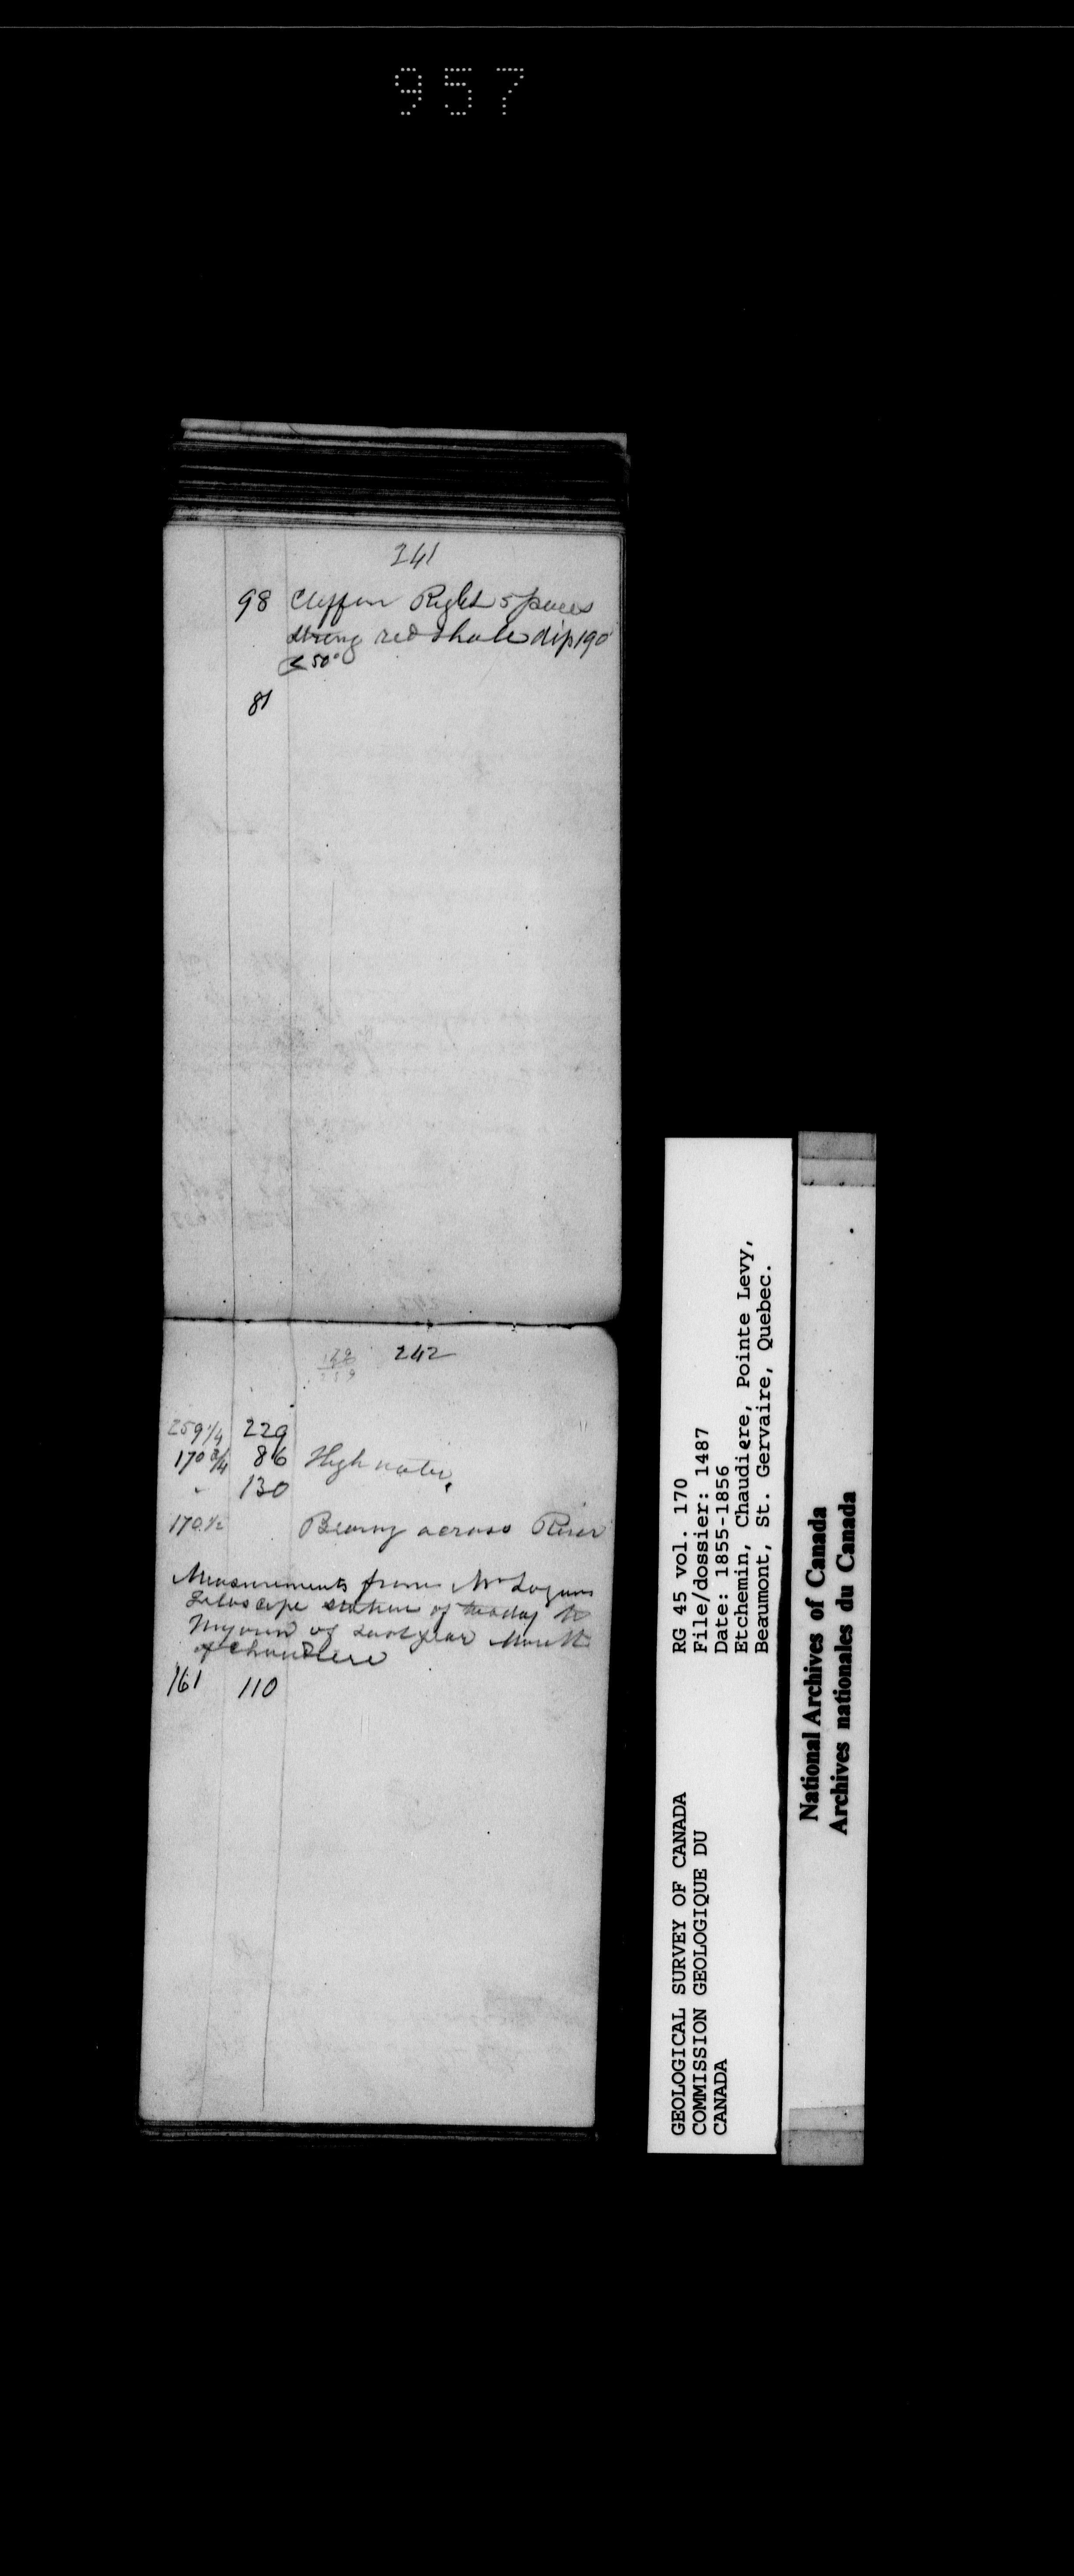 957
241
98 Cliff on Right 5 paces
strong red shale dip 190
< 50°
81
242
259 1/4 229
170 3/4 86 High water
" 130
170 1/2 Bearing across River
Measurements from Mr Logans
station of today to
my own of last year Mouth
of Chaudiere
161 110
RG 45 vol. 170
File/dossier: 1487
Date: 1855-1856
Etchemin, Chaudiere, Pointe Levy,
Beaumont, St. Gervaire, Quebec.
GEOLOGICAL SURVEY OF CANADA
COMMISSION GEOLOGIQUE DU
CANADA
National Archives of Canada
Archives nationales du Canada